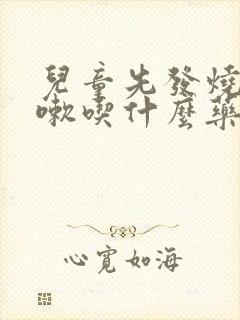 兒童先發燒
嗽喫什麼藥
心寬如海